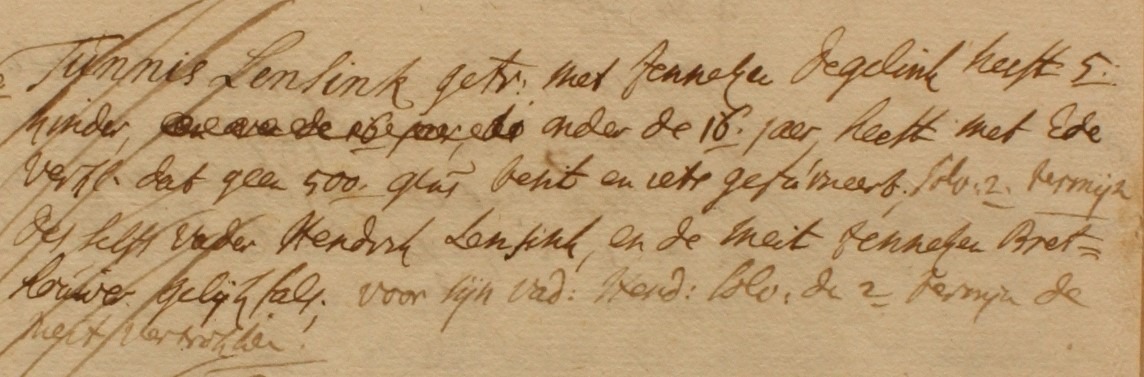 Tünnis Lensink getr: met Jenneken Degelink heeft 5.
kinder, onder de 16. jaer, heeft met Ede
verkl. dat geen 500. glns besit en iets gefürneert. Solv. 2. termijn
des selfs vader Hendrik Lensink, en de meit Jenneken Bret=
houwer gelijkfals, voor sijn vad: Hend: Solv. de 2 termijn de
meit vertrokken.